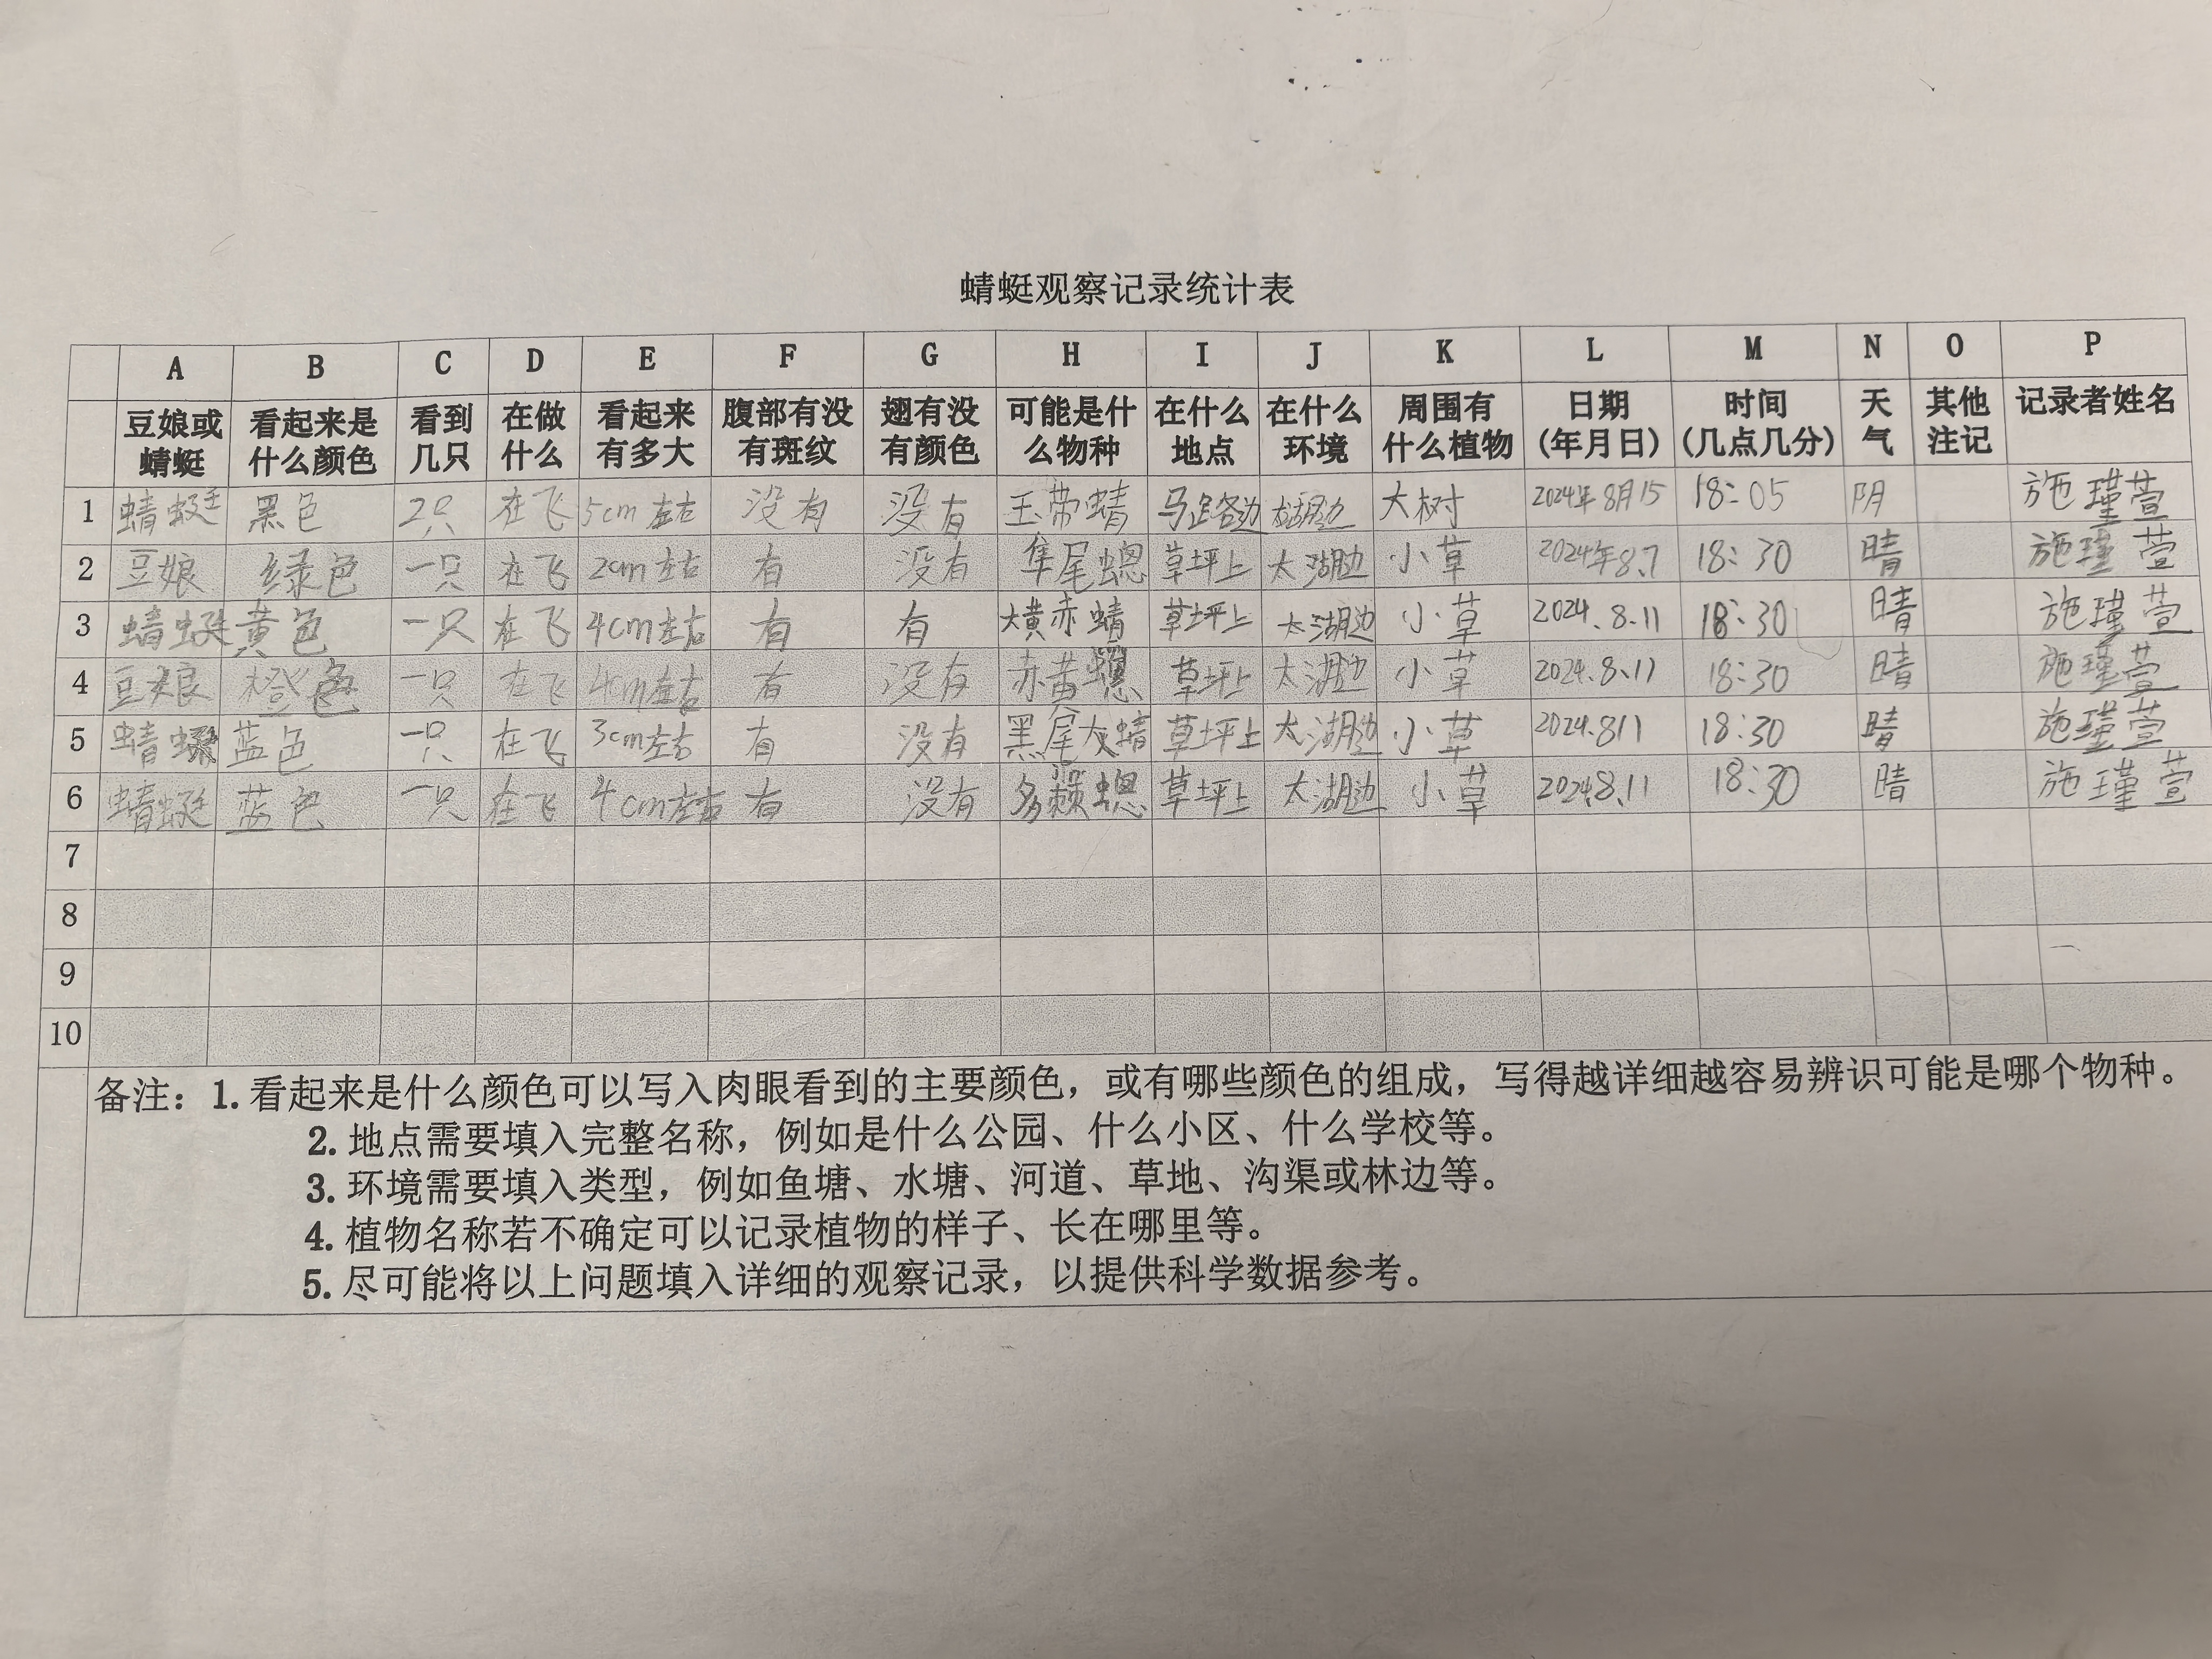 蜻蜓观察记录统计表
A B C D E F G H I J K L M N O P
豆娘或蜻蜓 看起来是什么颜色 看到几只 在做什么 看起来有多大 腹部有没有斑纹 翅有没有颜色 可能是什么物种 在什么地点 在什么环境 周围有什么植物 日期(年月日) 时间(几点几分) 天气 其他注记 记录者姓名
1 蜻蜓 黑色 2只 在飞 5cm左右 没有 没有 玉带蜻 马路边 太湖边 大树 2024年8月15 18:05 阴 施瑾萱
2 豆娘 绿色 一只 在飞 2cm左右 有 没有 隼尾蟌 草坪上 太湖边 小草 2024年8.7 18:30 晴 施瑾萱
3 蜻蜓 黄色 一只 在飞 4cm左右 有 有 大黄赤蜻 草坪上 太湖边 小草 2024.8.11 18:30 晴 施瑾萱
4 豆娘 橙色 一只 在飞 4cm左右 有 没有 赤黄蟌 草坪上 太湖边 小草 2024.8.11 18:30 晴 施瑾萱
5 蜻蜓 蓝色 一只 在飞 3cm左右 有 没有 黑尾灰蜻 草坪上 太湖边 小草 2024.811 18:30 晴 施瑾萱
6 蜻蜓 蓝色 一只 在飞 4cm左右 有 没有 多 蟌 草坪上 太湖边 小草 20248.11 18:30 晴 施瑾萱
7
8
9
10
备注：1. 看起来是什么颜色可以写入肉眼看到的主要颜色，或有哪些颜色的组成，写得越详细越容易辨识可能是哪个物种。
2. 地点需要填入完整名称，例如是什么公园、什么小区、什么学校等。
3. 环境需要填入类型，例如鱼塘、水塘、河道、草地、沟渠或林边等。
4. 植物名称若不确定可以记录植物的样子、长在哪里等。
5. 尽可能将以上问题填入详细的观察记录，以提供科学数据参考。